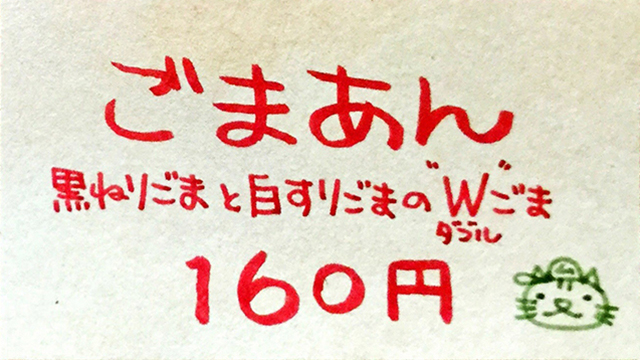 ごまあん
黒ねりごまと白すりごまの"W"ごま
ダブル
160円